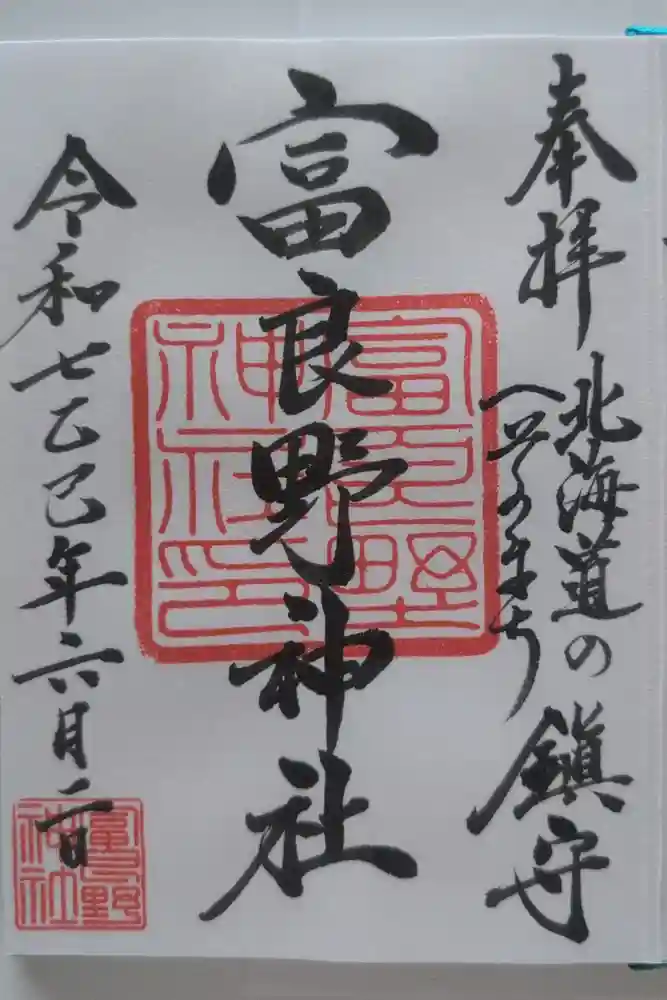 奉拝
北海道の
へそのまち
鎮守
富良野神社
富良野神社印
令和七乙巳年六月二日
富良野神社